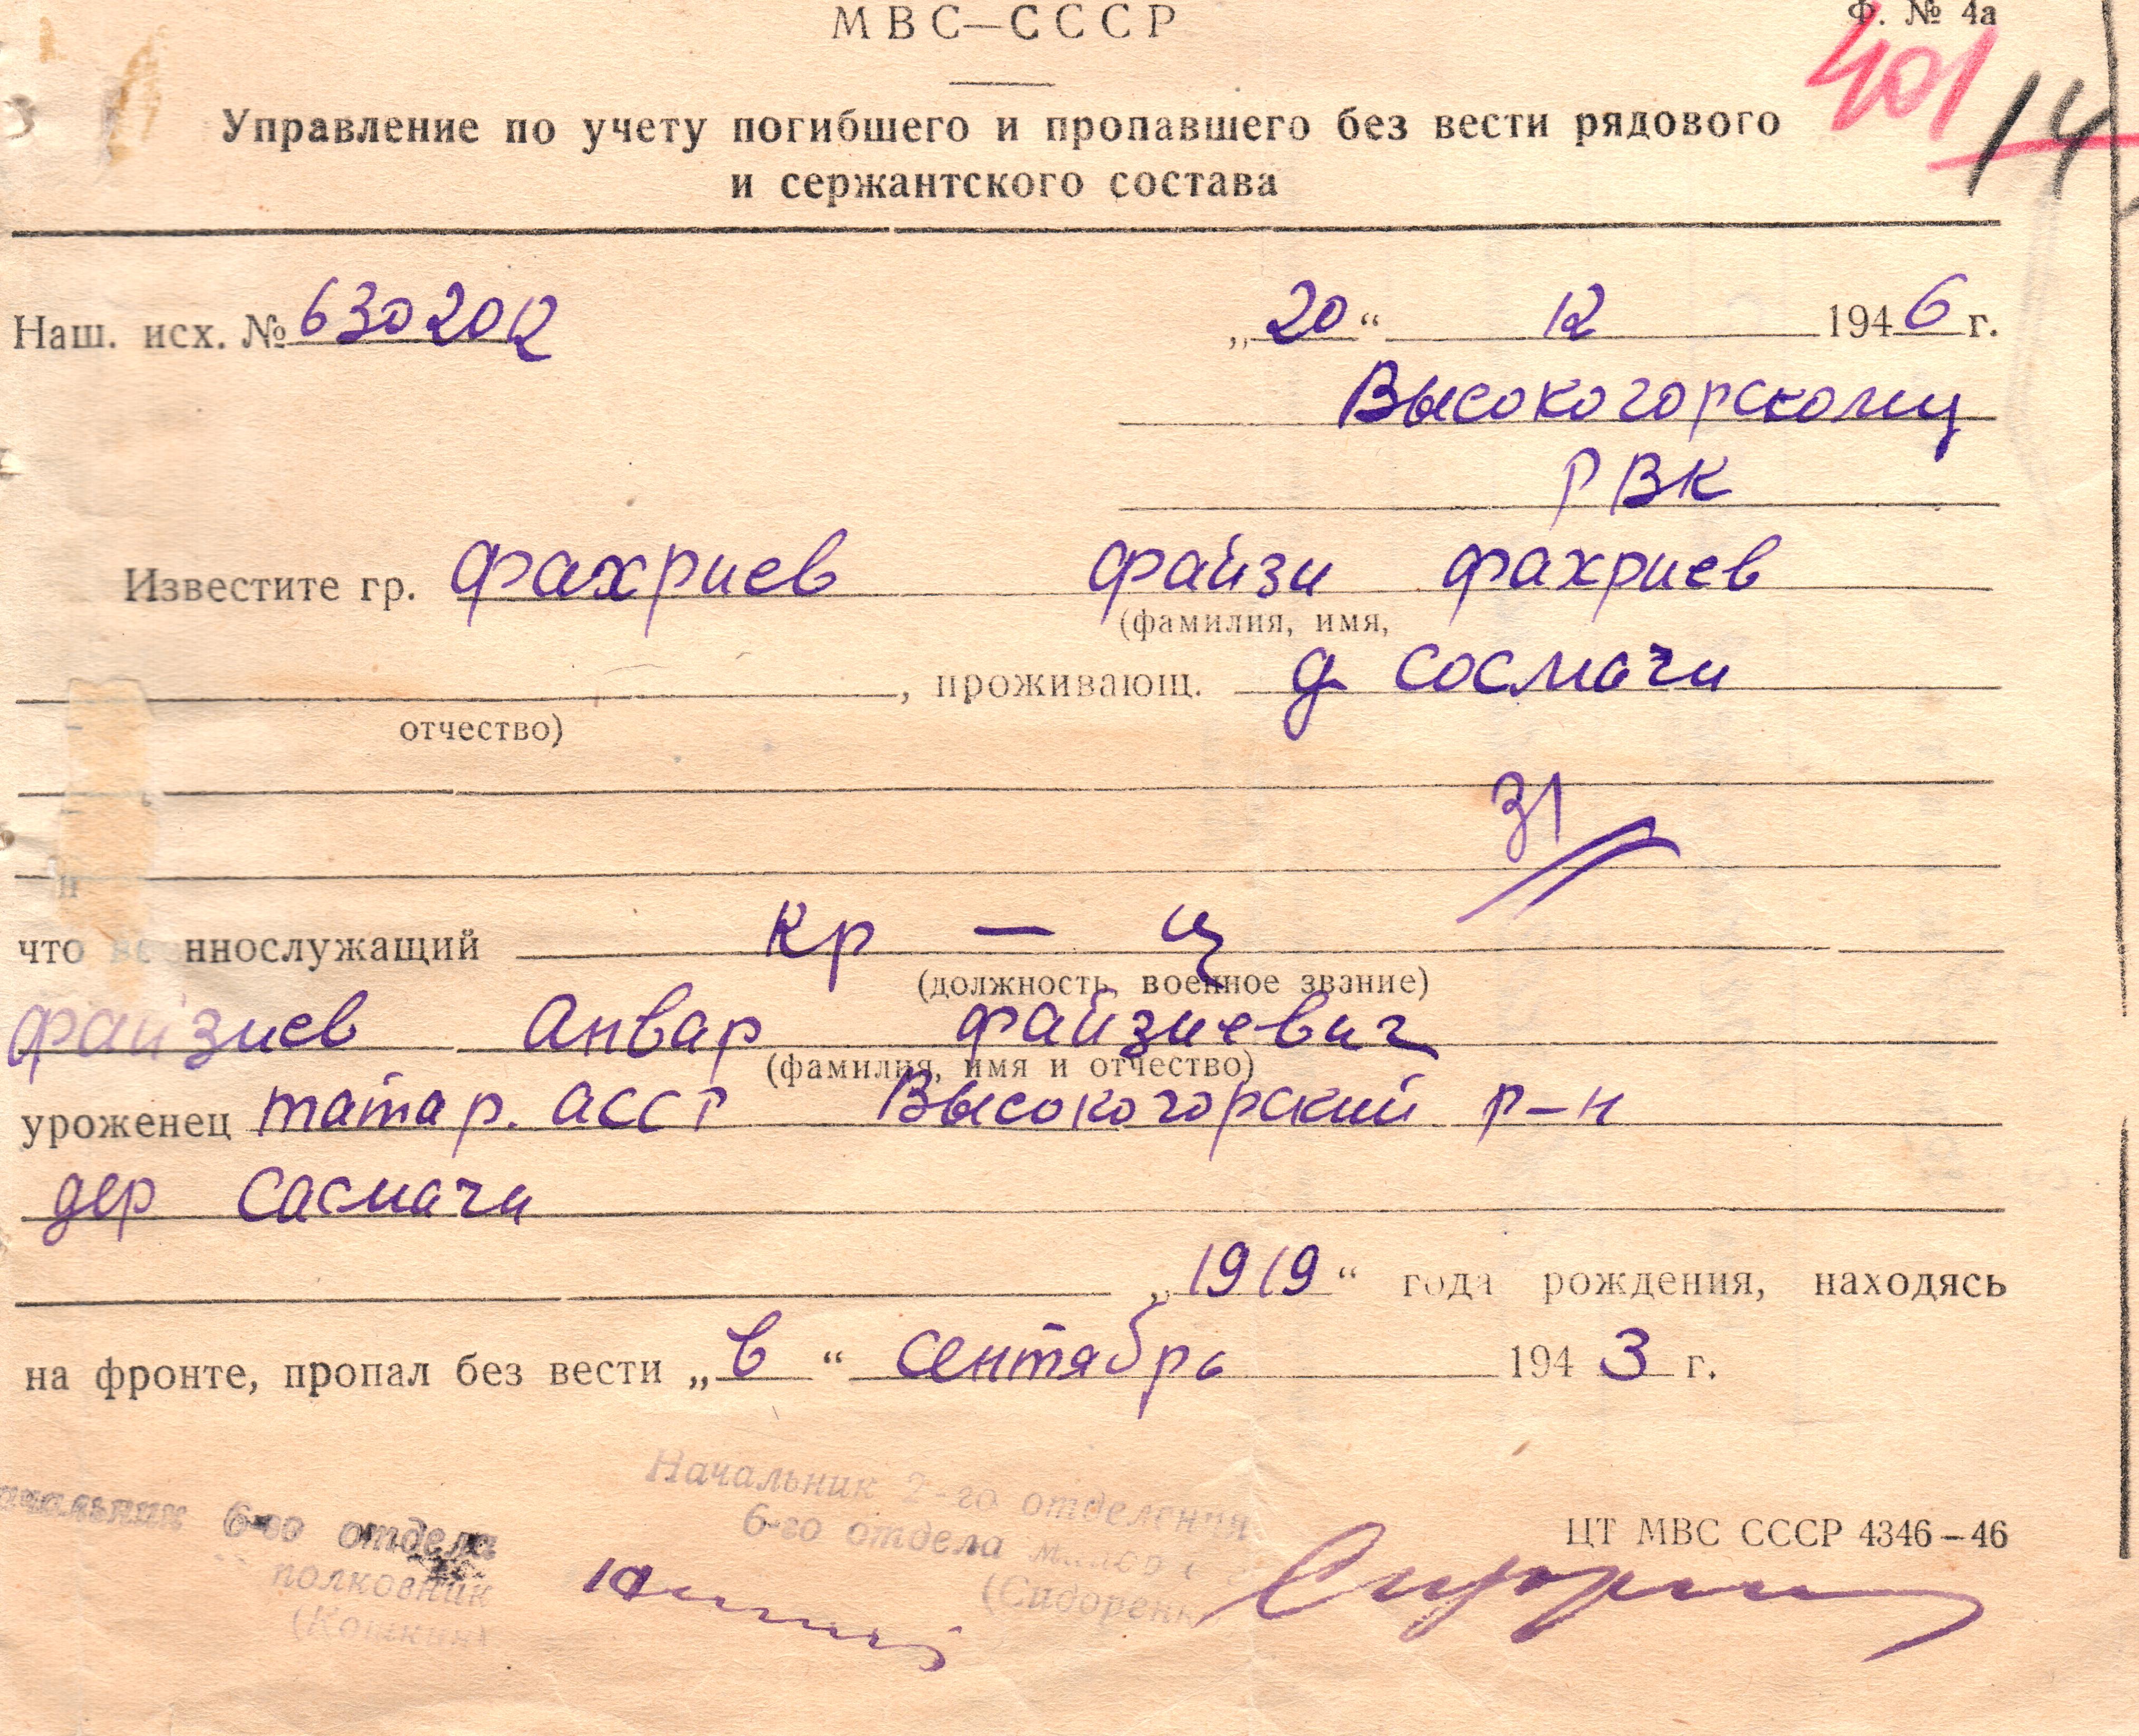 МВС—СССР
Ф. № 4а
401
14
Управление по учету погибшего и пропавшего без вести рядового
и сержантского состава
Наш. исх. № 630202 „20“ 12 1946 г.
Высокогорскому
РВК
Известите гр. Фахриев Файзи Фахриев
(фамилия, имя,
, проживающ. д Сосмачи
отчество)
31
что военнослужащий кр — ц
(должность, военное звание)
Файзиев Анвар Файзиевич
(фамилия, имя и отчество)
уроженец татар. АССР Высокогорский р-н
дер Сасмачи
„1919“ года рождения, находясь
на фронте, пропал без вести „в“ сентябрь 1943 г.
Начальник 2-го отделения
ачальник 6-го отдела
6-го отдела
ЦТ МВС СССР 4346–46
полковник
(Сидоренк
(Кошкин)